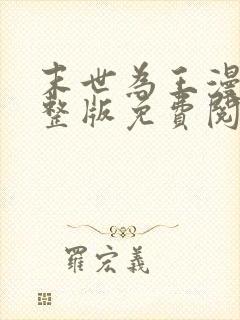 末世為王漫
整版免費閱
羅宏義